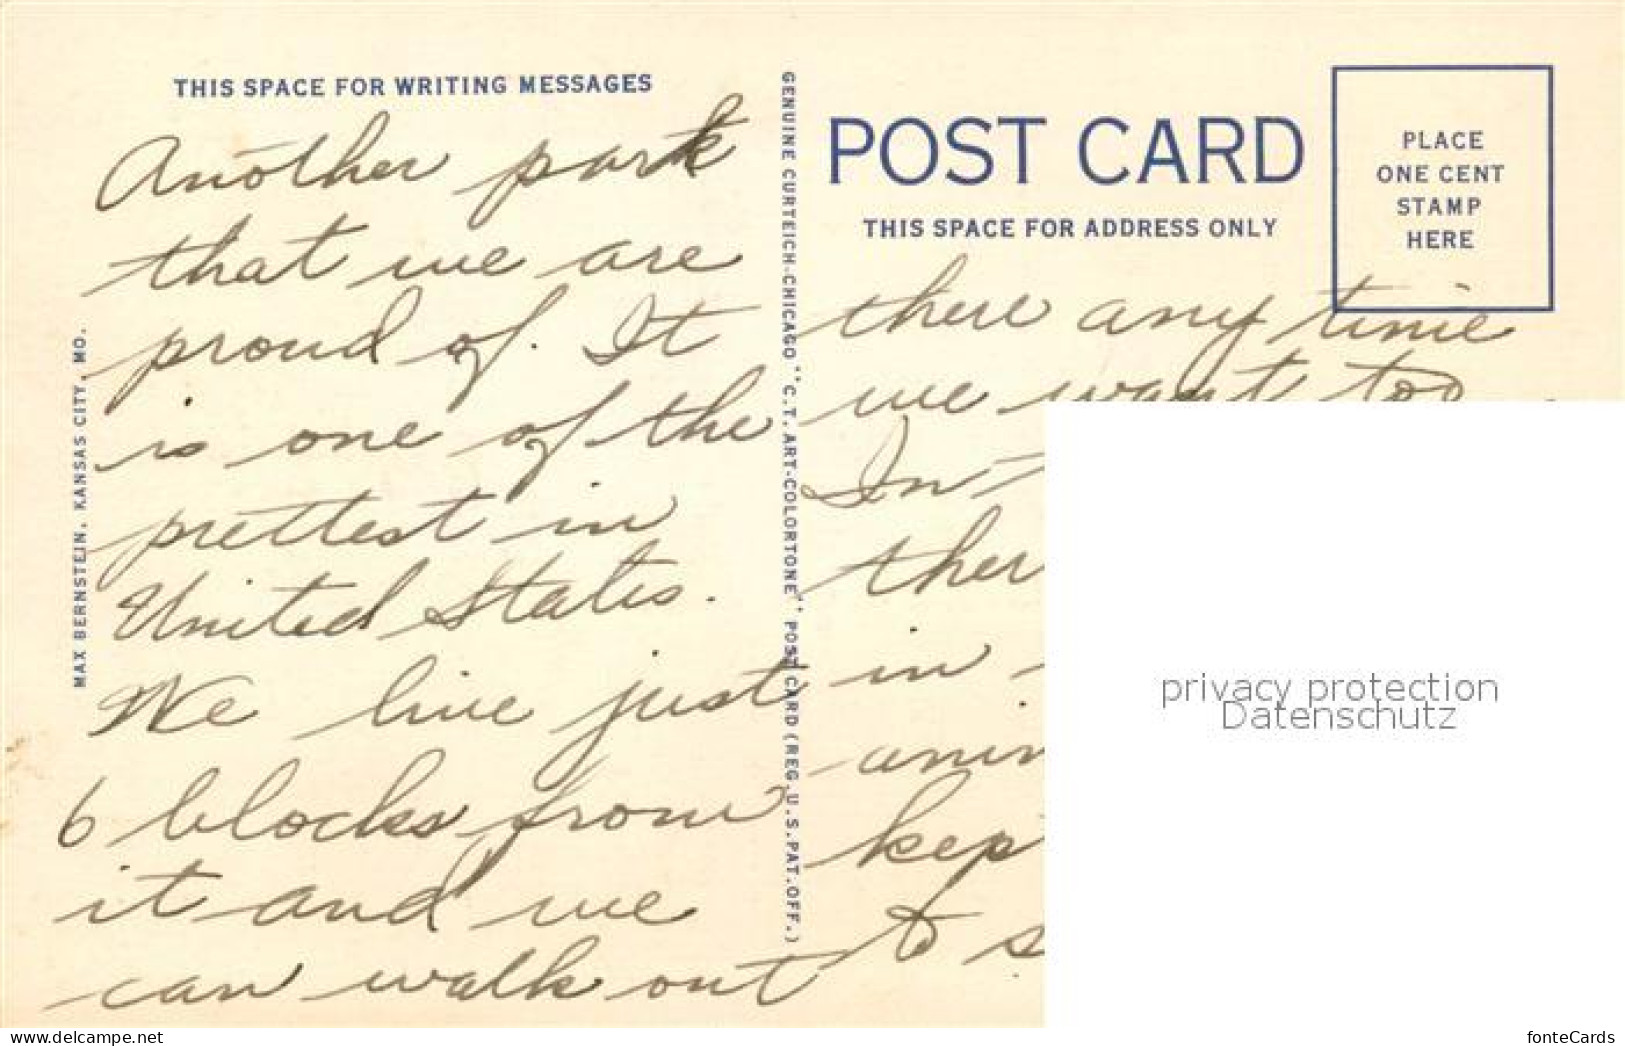 THIS SPACE FOR WRITING MESSAGES
Another park
that we are
proud of. It
is one of the
prettest in
United States.
We live just
6 blocks from
it and we
can walk out
MAX BERNSTEIN, KANSAS CITY, MO.
GENUINE CURTEICH-CHICAGO "C.T. ART-COLORTONE" POST CARD (REG. U.S. PAT. OFF.)
POST CARD
THIS SPACE FOR ADDRESS ONLY
PLACE
ONE CENT
STAMP
HERE
there any time
we want too
In
ther
in
anim
kep
to s
privacy protection
Datenschutz
www.ansichtskarten-center.de
fonteCards